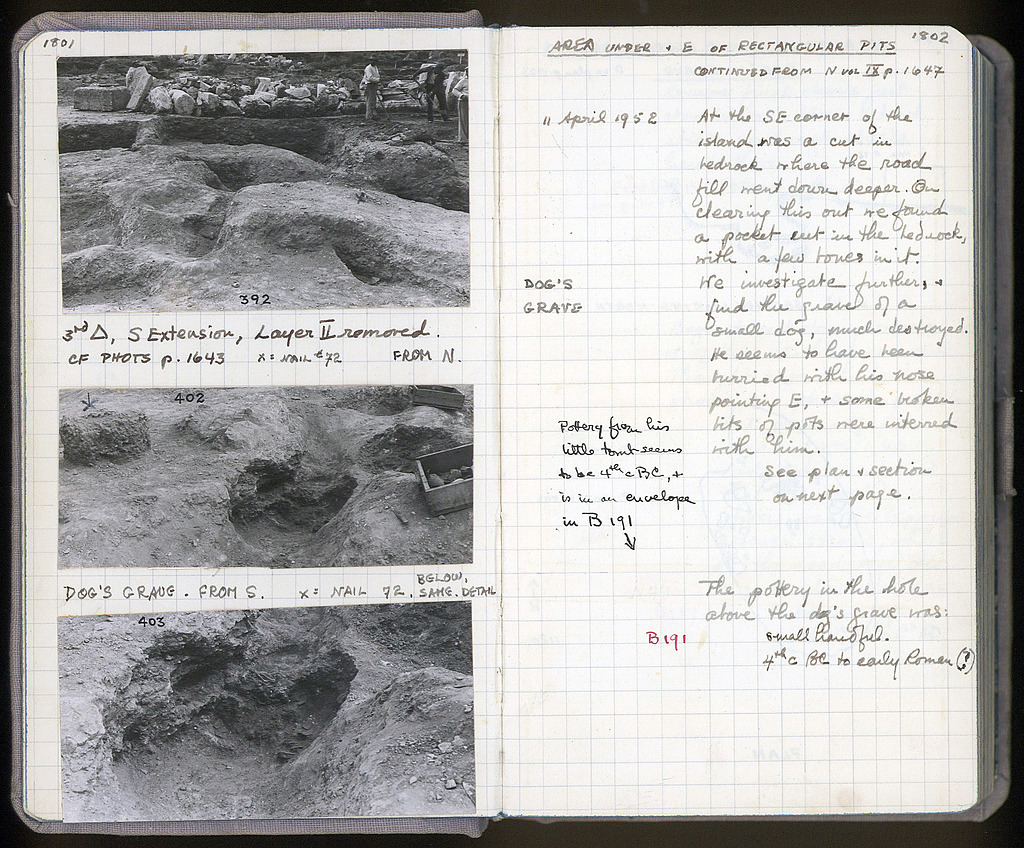 1801
392
3rd Δ, S Extension, Layer II removed.
CF PHOTS p. 1643 x = NAIL # 72 FROM N.
402
DOG'S GRAVE. FROM S. x = NAIL 72. BELOW, SAME. DETAIL
403
1802
AREA UNDER + E OF RECTANGULAR PITS
CONTINUED FROM N VOL IX p. 1647
11 April 1952
At the SE corner of the
island was a cut in
bedrock where the road
fill went down deeper. On
clearing this out we found
a pocket cut in the bedrock,
with a few bones in it.
DOG'S
GRAVE
We investigate further, +
find the grave of a
small dog, much destroyed.
He seems to have been
burried with his nose
pointing E, + some broken
bits of pots were interred
with him.
See plan + section
on next page.
Pottery from his
little tomb seems
to be 4th c BC, +
is in an envelope
in B 191
↓
The pottery in the hole
above the dog's grave was:
B 191
small handful.
4th c BC to early Roman (?)